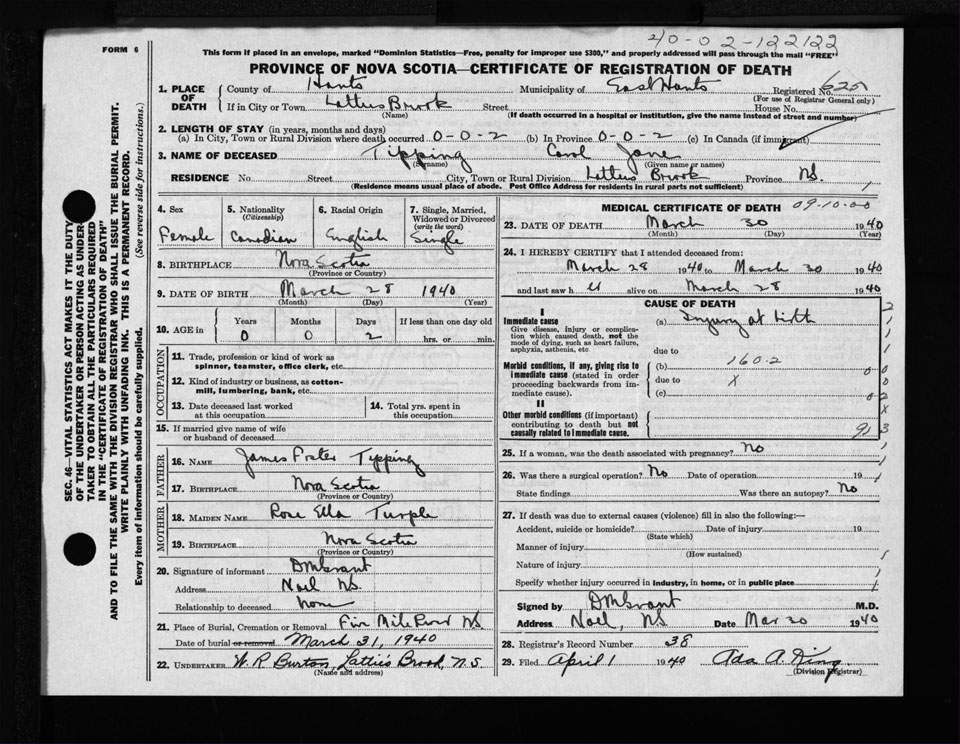 40-02-122122
FORM 6
This form if placed in an envelope, marked "Dominion Statistics—Free, penalty for improper use $300," and properly addressed will pass through the mail "FREE"
PROVINCE OF NOVA SCOTIA—CERTIFICATE OF REGISTRATION OF DEATH
1. PLACE OF DEATH
County of Hants Municipality of East Hants Registered No.
(For use of Registrar General only)
If in City or Town Latties Brook Street House No.
(Name) (If death occurred in a hospital or institution, give the name instead of street and number)
2. LENGTH OF STAY (in years, months and days)
(a) In City, Town or Rural Division where death occurred 0-0-2 (b) In Province 0-0-2 (c) In Canada (if immigrant)
3. NAME OF DECEASED Tipping Carol Jane
(Surname) (Given name or names)
RESIDENCE No. Street City, Town or Rural Division Latties Brook Province N.S.
(Residence means usual place of abode. Post Office Address for residents in rural parts not sufficient)
4. Sex
Female
5. Nationality
(Citizenship)
Canadian
6. Racial Origin
English
7. Single, Married, Widowed or Divorced
(write the word)
Single
8. BIRTHPLACE Nova Scotia
(Province or Country)
9. DATE OF BIRTH March 28 1940
(Month) (Day) (Year)
10. AGE in
Years Months Days If less than one day old
0 0 2 hrs. or min.
OCCUPATION
11. Trade, profession or kind of work as
spinner, teamster, office clerk, etc.
12. Kind of industry or business, as cotton-
mill, lumbering, bank, etc.
13. Date deceased last worked
at this occupation
14. Total yrs. spent in
this occupation
15. If married give name of wife
or husband of deceased
FATHER
16. NAME James Foster Tipping
17. BIRTHPLACE Nova Scotia
(Province or Country)
MOTHER
18. MAIDEN NAME Rose Ella Turple
19. BIRTHPLACE Nova Scotia
(Province or Country)
20. Signature of informant
Address Noel NS.
Relationship to deceased None
21. Place of Burial, Cremation or Removal Five Mile River N.S.
Date of burial or removal March 31, 1940
22. UNDERTAKER W. R. Burton, Lattie's Brook, N.S.
(Name and address)
MEDICAL CERTIFICATE OF DEATH 09.10.00
23. DATE OF DEATH March 30 1940
(Month) (Day) (Year)
24. I HEREBY CERTIFY that I attended deceased from:
March 28 1940 to March 30 1940
and last saw h er alive on March 28 1940
CAUSE OF DEATH
I
Immediate cause
Give disease, injury or complica-
tion which caused death, not the
mode of dying, such as heart failure,
asphyxia, asthenia, etc.
(a) Injury at birth
due to
Morbid conditions, if any, giving rise to
immediate cause (stated in order
proceeding backwards from im-
mediate cause).
(b) 160.2
due to X
(c)
II
Other morbid conditions (if important)
contributing to death but not
causally related to immediate cause.
25. If a woman, was the death associated with pregnancy? No
26. Was there a surgical operation? No Date of operation 19
State findings Was there an autopsy? No
27. If death was due to external causes (violence) fill in also the following:—
Accident, suicide or homicide? Date of injury 19
(State which)
Manner of injury
(How sustained)
Nature of injury
Specify whether injury occurred in industry, in home, or in public place
Signed by M.D.
Address Noel, NS Date Mar 30 1940
28. Registrar's Record Number 38
29. Filed April 1 1940 Ada A. King
(Division Registrar)
SEC. 46—VITAL STATISTICS ACT MAKES IT THE DUTY
OF THE UNDERTAKER OR PERSON ACTING AS UNDER-
TAKER TO OBTAIN ALL THE PARTICULARS REQUIRED
IN THE "CERTIFICATE OF REGISTRATION OF DEATH"
AND TO FILE THE SAME WITH THE DIVISION REGISTRAR WHO SHALL ISSUE THE BURIAL PERMIT.
WRITE PLAINLY WITH UNFADING INK. THIS IS A PERMANENT RECORD.
Every item of information should be carefully supplied. (See reverse side for instructions.)